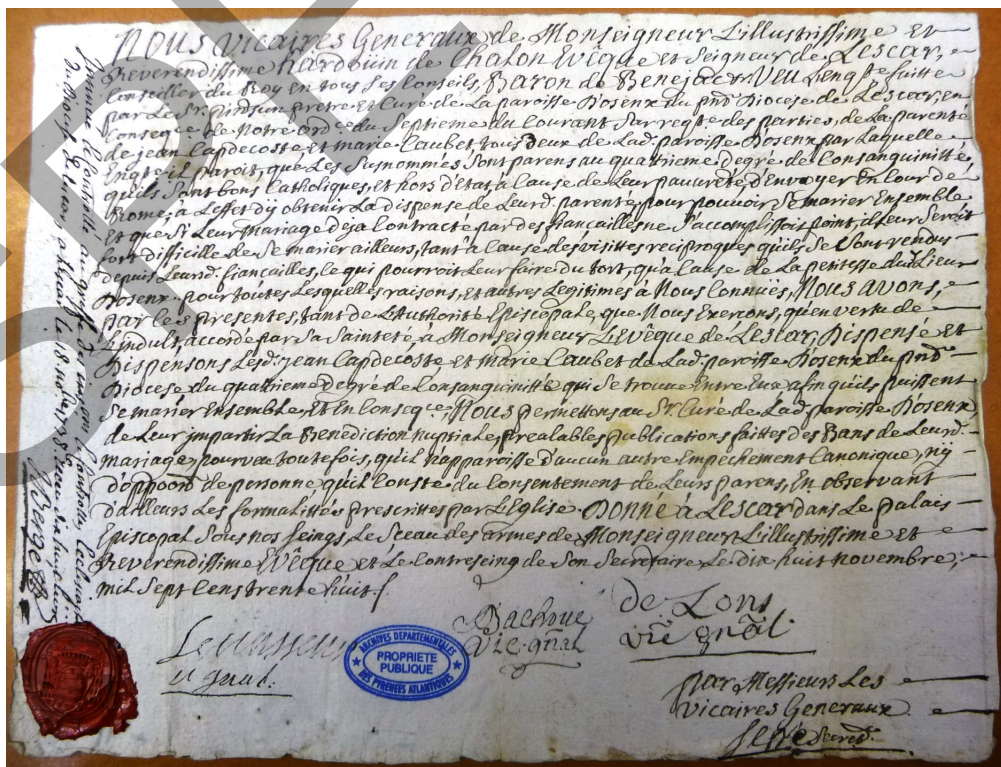 NOUS Vicaires Generaux de Monseigneur L'illustrissime et
Reverendissime hardouin de Chalon Evêque et Seigneur de Lescar,
Conseiller du Roy en tous ses Conseils, Baron de Benejacq Veu L'enqte faitte
par Le Sr. pretre et Curé de La paroisse d'osenx du pnt Diocese de Lescar, en
conseqce de Notre ordce du Septieme du Courant Sur reqte des parties, de La parenté
de jean Capdecoste et marie Caubet tous deux de Lad. paroisse d'osenx par Laquelle
Enqte il paroit, que Les Susnommés Sont parens au quatrieme degré de Consanguinitté,
qu'ils Sont bons Catholiques, et hors d'Etat à Cause de Leur pauvreté d'Envoyer En Cour de
Rome, à L'effet d'y obtenir La dispense de Leurd. parenté, pour pouvoir Se marier Ensemble
Et que Si Leur mariage deja Contracté par des fiancailles ne S'accomplissoit point, il Leur Seroit
fort difficille de Se marier ailleurs, tant à Cause des visittes reciproques qu'ils Se Sont rendus
depuis Leursd. fiancailles, ce qui pourroit Leur faire du tort, qu'à Cause de La petitesse dud. Lieu
d'osenx. pour toutes Lesquelles raisons, et autres Legitimes à Nous Connuës, Nous avons,
par Les presentes, tant de L'authorité Episcopale, que Nous Exercons, qu'en vertu de
L'indult, accordé par Sa Sainteté, à Monseigneur L'Evêque de Lescar, Dispensé et
Dispensons Lesd. jean Capdecoste et marie Caubet de Lad. paroisse d'osenx du pnt
Diocese du quatrieme Degré de Consanguinitté qui Se trouve Entre Eux afin qu'ils puissent
Se marier Ensemble, Et En Conseqce, Nous permettons au Sr. Curé de Lad. paroisse d'osenx,
de Leur impartir La Benediction nuptiale, prealables publications faittes des Bans de Leurd.
mariage, pourveu toutefois, qu'il n'apparoisse d'aucun autre Empechement Canonique, ny
d'oppoon de personne qu'il Conste du Consentement de Leurs parens, En observant
d'ailleurs Les formalittés prescrittes par L'Eglise. Donné à Lescar dans Le palais
Episcopal Sous nos Seings, Le Sceau des armes de Monseigneur L'illustrissime et
Reverendissime Evêque et Le Contreseing de Son Secretaire Le dix huit novembre,
mil Sept Cens trente huit.
vic gnal.
Bachoué
vic. gnal
de Lons
vic gnal.
par Messieurs Les
Vicaires Generaux.
Secred.
ARCHIVES DEPARTEMENTALES
PROPRIETE
PUBLIQUE
DES PYRENEES ATLANTIQUES